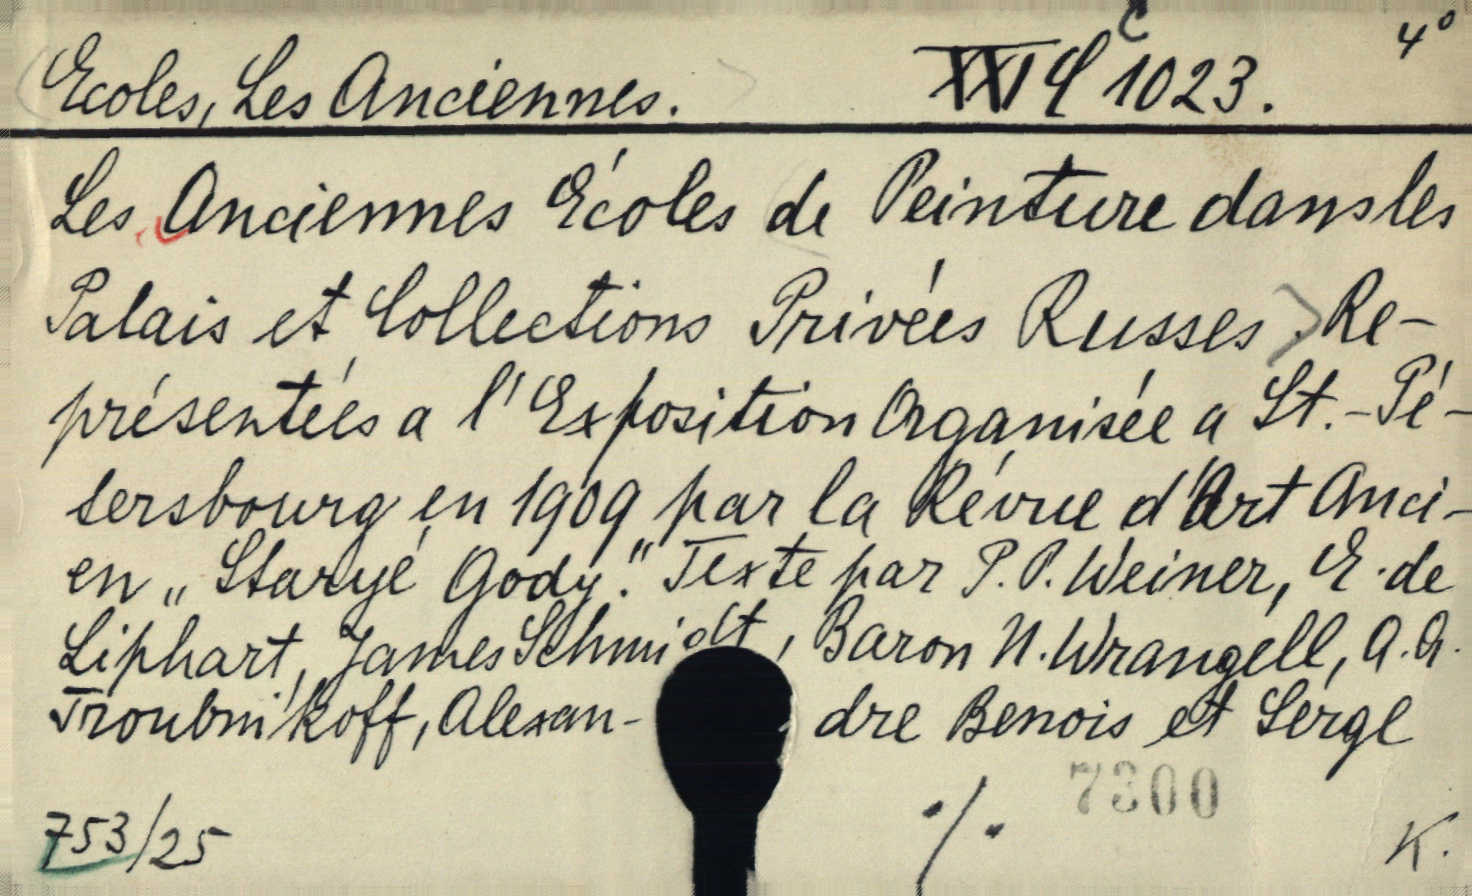 Ecoles, Les Anciennes. XXI C 1023. 4°
Les Anciennes Écoles de Peinture dans les
Palais et Collections Privées Russes. Re-
présentées a l'Exposition Organisée a St.-Pé-
tersbourg en 1909 par la Révue d'Art Anci-
en „Staryé Gody." Texte par P. P. Weiner, E. de
Liphart, James Schmidt, Baron N. Wrangell, A. A.
Troubnikoff, Alexan- dre Benois et Serge
7300
753/25 ./. K.